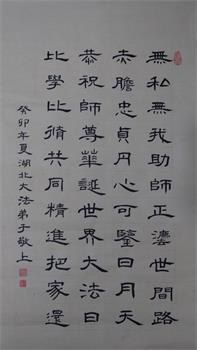 無私無我助師正法世間路
赤膽忠貞丹心可鑒日月天
恭祝師尊華誕世界大法日
比學比脩共同精進把家還
癸卯年夏湖北大法弟子敬上